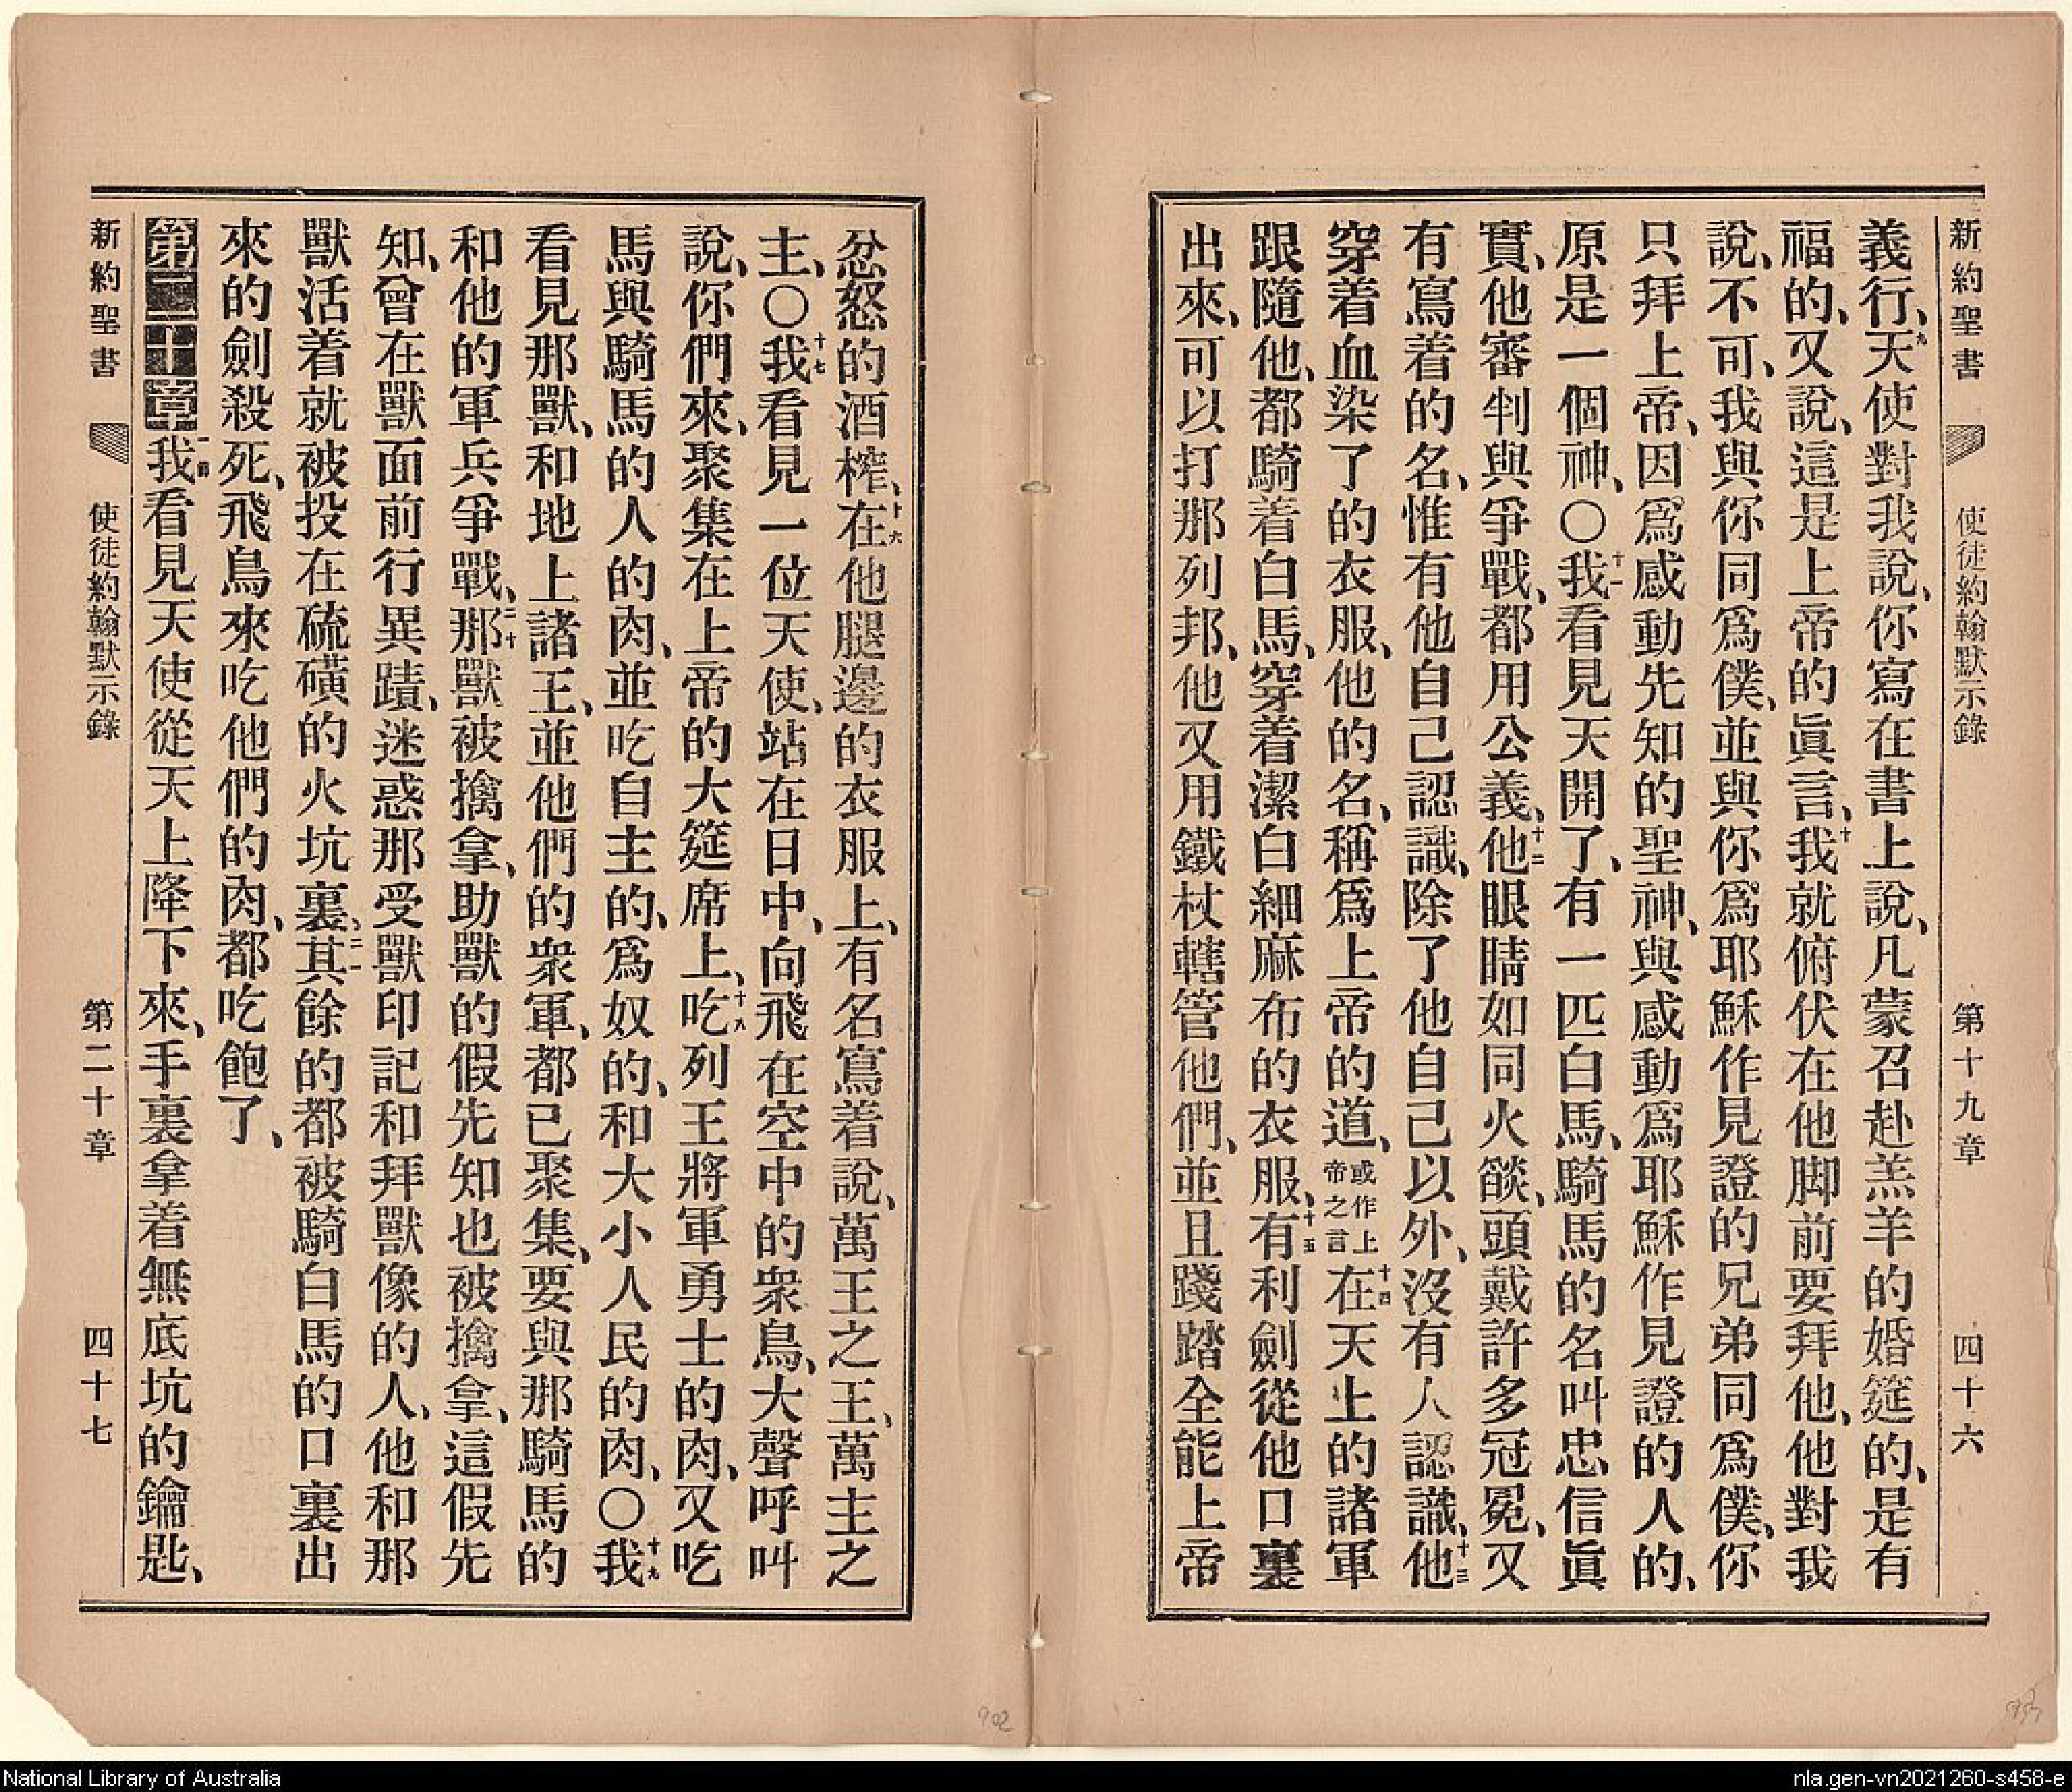 新約聖書 使徒約翰默示錄 第十九章 四十六
義行、九天使對我說、你寫在書上說、凡蒙召赴羔羊的婚筵的、是有
福的、又說、這是上帝的眞言、十我就俯伏在他脚前要拜他、他對我
說、不可、我與你同爲僕、並與你爲耶穌作見證的兄弟同爲僕、你
只拜上帝、因爲感動先知的聖神、與感動爲耶穌作見證的人的、
原是一個神、〇十一我看見天開了、有一匹白馬、騎馬的名叫忠信眞
實、他審判與爭戰、都用公義、十二他眼睛如同火燄、頭戴許多冠冕、又
有寫着的名、惟有他自己認識、除了他自己以外、沒有人認識、十三他
穿着血染了的衣服、他的名、稱爲上帝的道、或作上帝之言十四在天上的諸軍
跟隨他、都騎着白馬、穿着潔白細麻布的衣服、十五有利劍從他口裏
出來、可以打那列邦、他又用鐵杖轄管他們、並且踐踏全能上帝
忿怒的酒榨、十六在他腿邊的衣服上、有名寫着說、萬王之王、萬主之
主、〇十七我看見一位天使、站在日中、向飛在空中的衆鳥、大聲呼叫
說、你們來、聚集在上帝的大筵席上、十八吃列王將軍勇士的肉、又吃
馬與騎馬的人的肉、並吃自主的、爲奴的、和大小人民的肉、〇十九我
看見那獸、和地上諸王、並他們的衆軍、都已聚集、要與那騎馬的
和他的軍兵爭戰、二十那獸被擒拿、助獸的假先知也被擒拿、這假先
知、曾在獸面前行異蹟、迷惑那受獸印記和拜獸像的人、他和那
獸活着就被投在硫磺的火坑裏、二一其餘的都被騎白馬的口裏出
來的劍殺死、飛鳥來吃他們的肉、都吃飽了、
第二十章一節我看見天使從天上降下來、手裏拿着無底坑的鑰匙、
新約聖書 使徒約翰默示錄 第二十章 四十七
902
National Library of Australia
nla.gen-vn2021260-s458-e